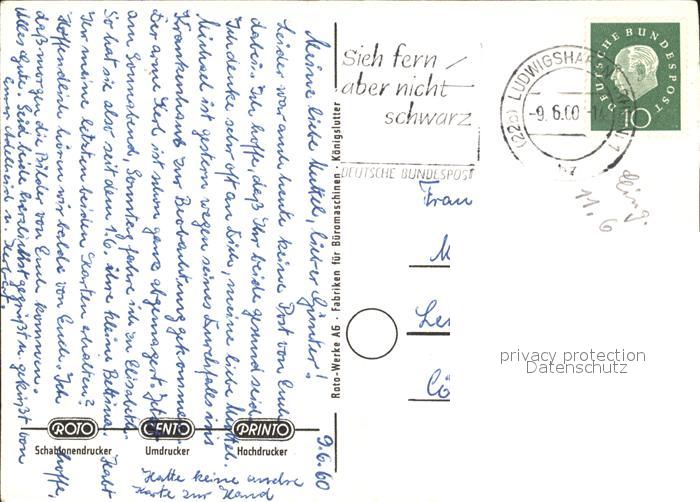 9.6.60
Meine liebe Muttel, lieber Günter!
Leider war auch heute keine Post von Euch
dabei. Ich hoffe, daß Ihr beide gesund seid.
Ich denke sehr oft an Dich, meine liebe Muttel.
Michael ist gestern wegen seines Durchfalles ins
Krankenhaus zur Beobachtung gekommen.
Der arme Kerl ist schon ganz abgemagert. Jetzt
am Sonnabend, Sonntag fahre ich zu Elisabeth.
So hat sie dort seit dem 1.6. ihre kleine Bettina. Habt
Ihr meine letzten beiden Karten erhalten?
Hoffentlich hören wir bald von Euch. Ich hoffe,
daß morgen die Bilder von Euch kommen.
Alles Gute. Seid beide herzlichst gegrüßt u. geküßt von
Eurer u.
Hatte keine andere
Karte zur Hand
ROTO
Schablonendrucker
CENTO
Umdrucker
PRINTO
Hochdrucker
Roto-Werke AG · Fabriken für Büromaschinen · Königslutter
Sieh fern
aber nicht
schwarz
DEUTSCHE BUNDESPOST
(22b) LUDWIGSHAFEN
-9.6.60
DEUTSCHE BUNDESPOST
10
11.6
Frau
privacy protection
Datenschutz